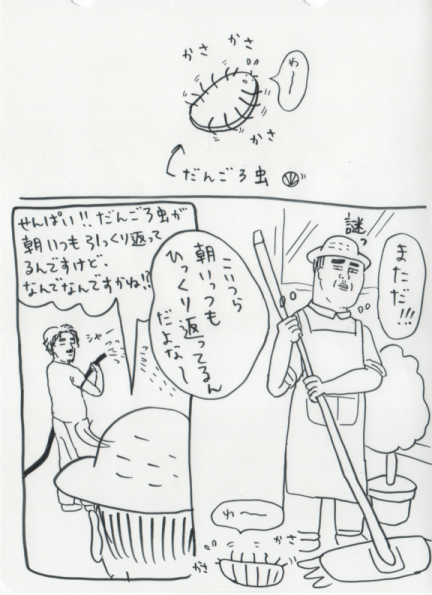 かさ
かさ
わ〜
かさ
だんごろ虫
謎っ
まただ!!!
こいつら
朝いっつも
ひっくり返ってるん
だよな〜
せんぱい!!だんごろ虫が
朝いつも引っくり返って
るんですけど、
なんでなんですかね!?
シャー
わ〜
かさ
かさ